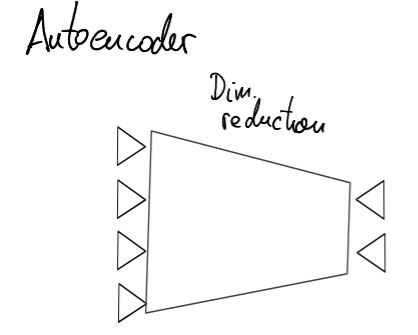 Autoencoder
Dim.
reduction